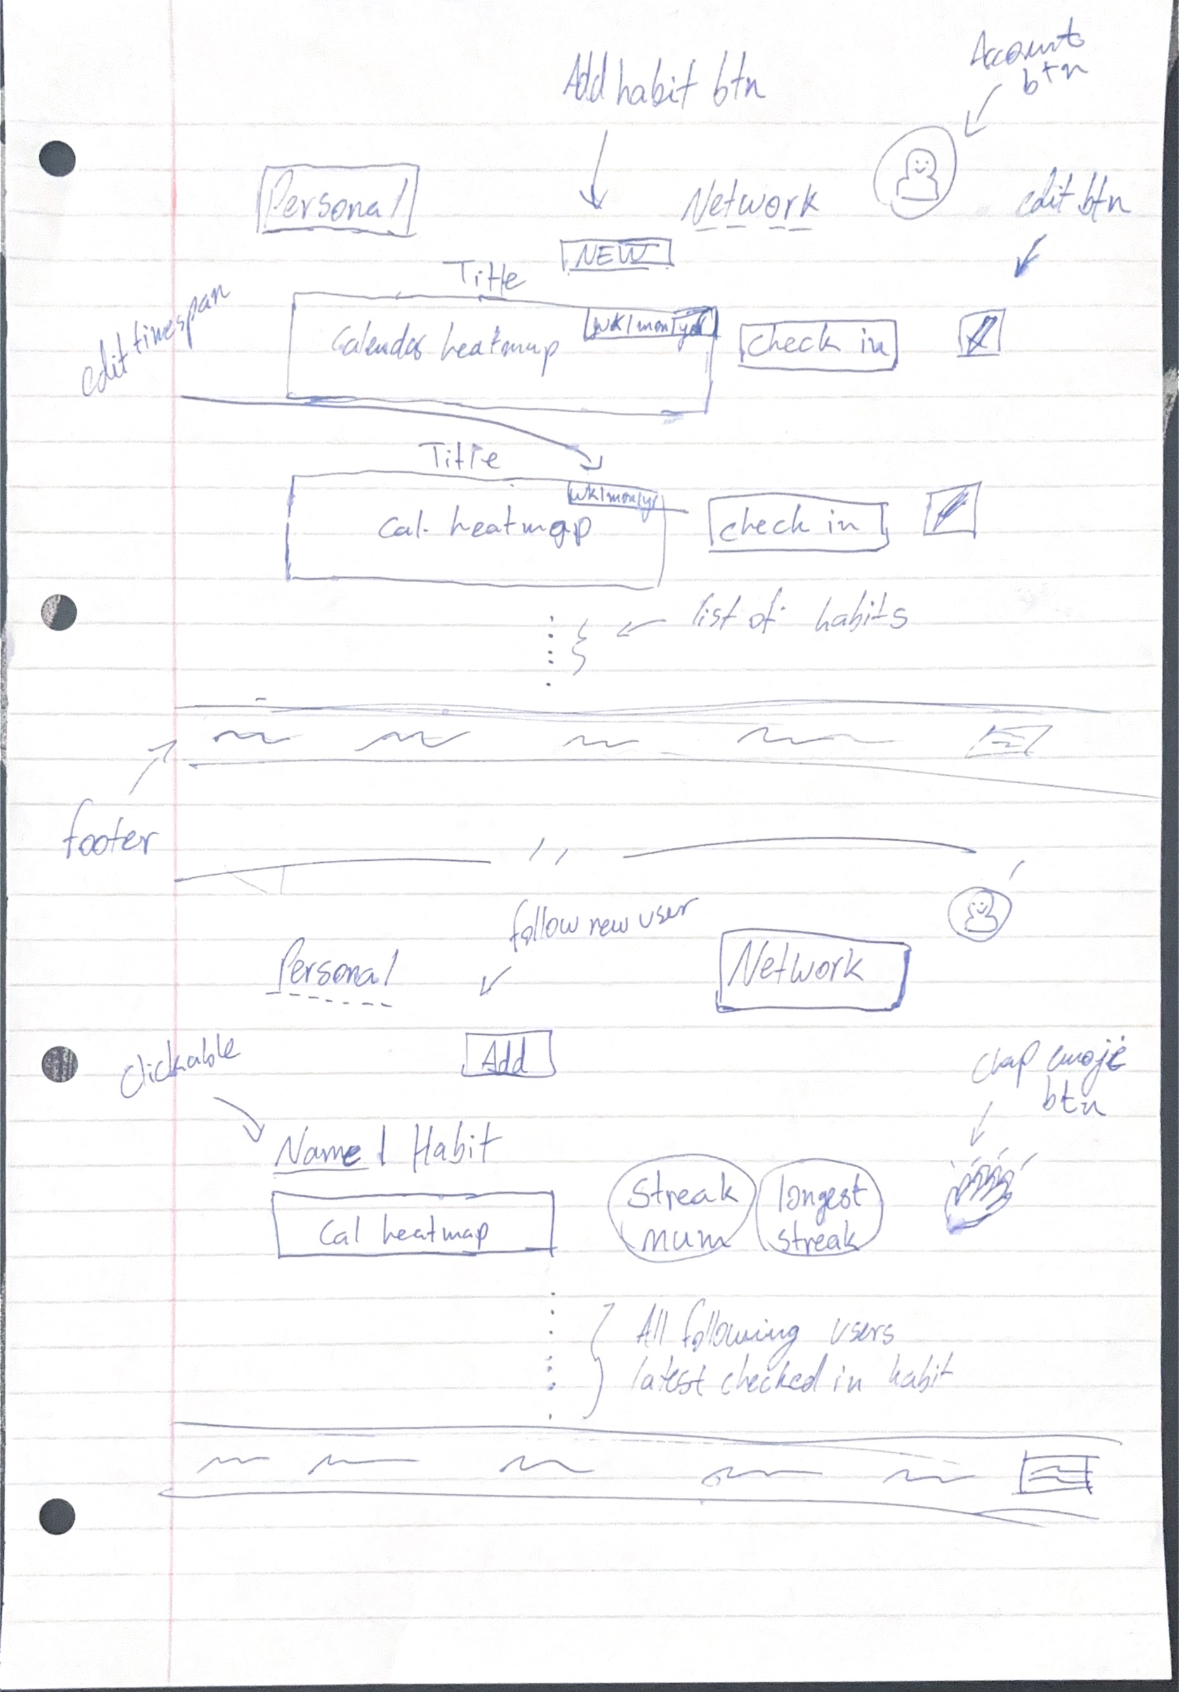 Add habit btn
Account
btn
Personal
Network
edit btn
NEW
Title
edit timespan
Calendar heatmap
wk|mon|yr
check in
Title
Cal. heatmap
wk|mon|yr
check in
list of habits
footer
follow new user
Personal
Network
clickable
Add
clap emoji
btn
Name | Habit
Cal heatmap
Streak
num
longest
streak
All following users
latest checked in habit